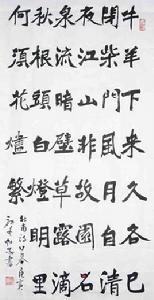 牛羊下来久各已
閉柴門風月自清
夜江山非故園石
泉流暗壁草露滴
秋根頭白燈明里
何須花燼繁
杜甫詩日暮庚寅